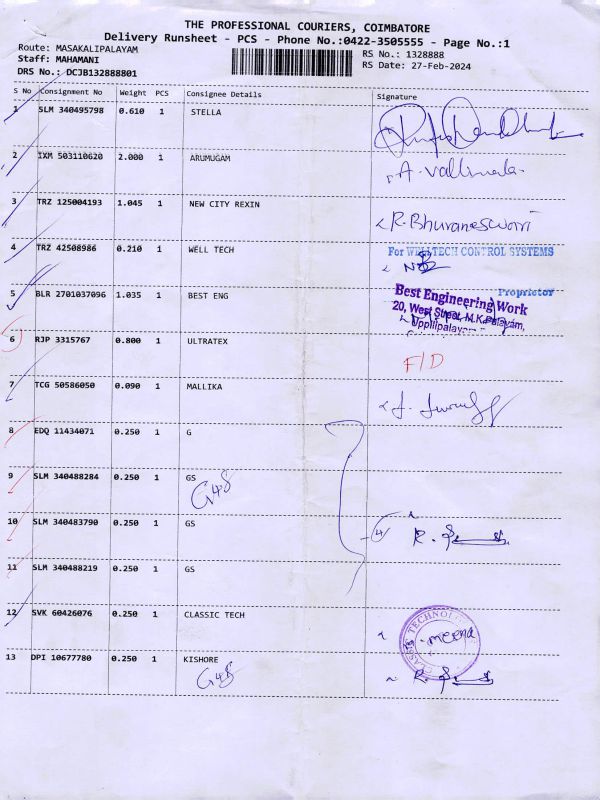 THE PROFESSIONAL COURIERS, COIMBATORE
Delivery Runsheet - PCS - Phone No.:0422-3505555 - Page No.:1
Route: MASAKALIPALAYAM
RS No.: 1328888
Staff: MAHAMANI
RS Date: 27-Feb-2024
DRS No.: DCJB132888801
S No Consignment No Weight PCS Consignee Details Signature
1 SLM 340495798 0.610 1 STELLA
2 IXM 503110620 2.000 1 ARUMUGAM A. Vallimala
3 TRZ 125004193 1.045 1 NEW CITY REXIN R. Bhuraneswari
4 TRZ 42508986 0.210 1 WELL TECH For WELLTECH CONTROL SYSTEMS
Proprietor
5 BLR 2701037096 1.035 1 BEST ENG Best Engineering Work
20, West Street, M.K.Palayam,
Uppilipalayam
6 RJP 3315767 0.800 1 ULTRATEX F/D
7 TCG 50586050 0.090 1 MALLIKA
8 EDQ 11434071 0.250 1 G
9 SLM 340488284 0.250 1 GS
G4S
10 SLM 340483790 0.250 1 GS 4 R.
11 SLM 340488219 0.250 1 GS
12 SVK 60426076 0.250 1 CLASSIC TECH CLASSIC TECHNOLOG
meena
13 DPI 10677780 0.250 1 KISHORE
G4S R.